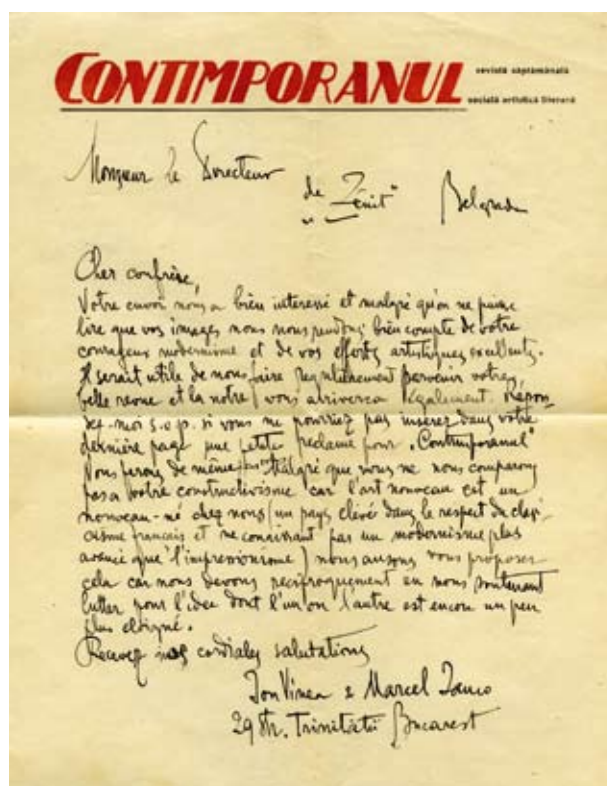 CONTIMPORANUL
revistă săptămânală
socială artistică literară
Monsieur le Directeur
de "Zenit" Belgrade
Cher confrère,
Votre envoi nous a bien interessé et malgré qu'on ne puisse
lire que vos images nous nous rendons bien compte de votre
courageux modernisme et de vos efforts artistiques excellents.
Il serait utile de nous faire regulièrement parvenir votre
belle revue et la notre vous arrivera également. Repon-
dez-moi s.v.p. si vous ne pourriez pas inserer dans votre
dernière page une petite reclame pour "Contimporanul"
Nous ferons de même Malgré que nous ne nous comparons
pas a votre constructivisme car l'art nouveau est un
nouveau-né chez nous (un pays elevé dans le respect du clasi-
cisme français et ne conaissant pas un modernisme plus
avancé que l'impressionisme) nous ausons vous proposer
cela car nous devons reciproquement en nous soutenant
lutter pour l'idee dont l'un ou l'autre est encore un peu
plus eloigné.
Recevez nos cordiales salutations
Ion Vinea & Marcel Janco
29 Str. Trinitatii Bucarest